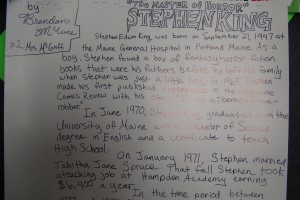 by:
Brandon
McCune
P.2 Mrs. McGaff
"The MASTER OF HORROR"
STEPHEN KING
Stephen Edwin King was born on September 21, 1947 at
the Maine General Hospital in Portland Maine. As a
boy, Stephen found a box of fantasy-horror fiction
books that were his fathers, before he left his family
when Stephen was just a little boy. In 1965 Stephen
made his first published
Comics Review with his story "I was a Teenage Grave
robber"
In June 1970, Stephen King graduated from the
University of Maine with a bachelor of Science
degree in English and a certificate to teach
High School.
On January 1971, Stephen married
Tabitha Jane Spruce. That fall Stephen took
a teaching job at Hampden Academy earning
$6,400 a year.
In the time period between